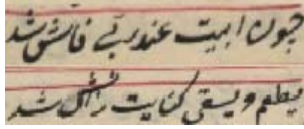 چون ابیت عند ربی فاش شد
یطعم ویسقی کنایت ز آش شد